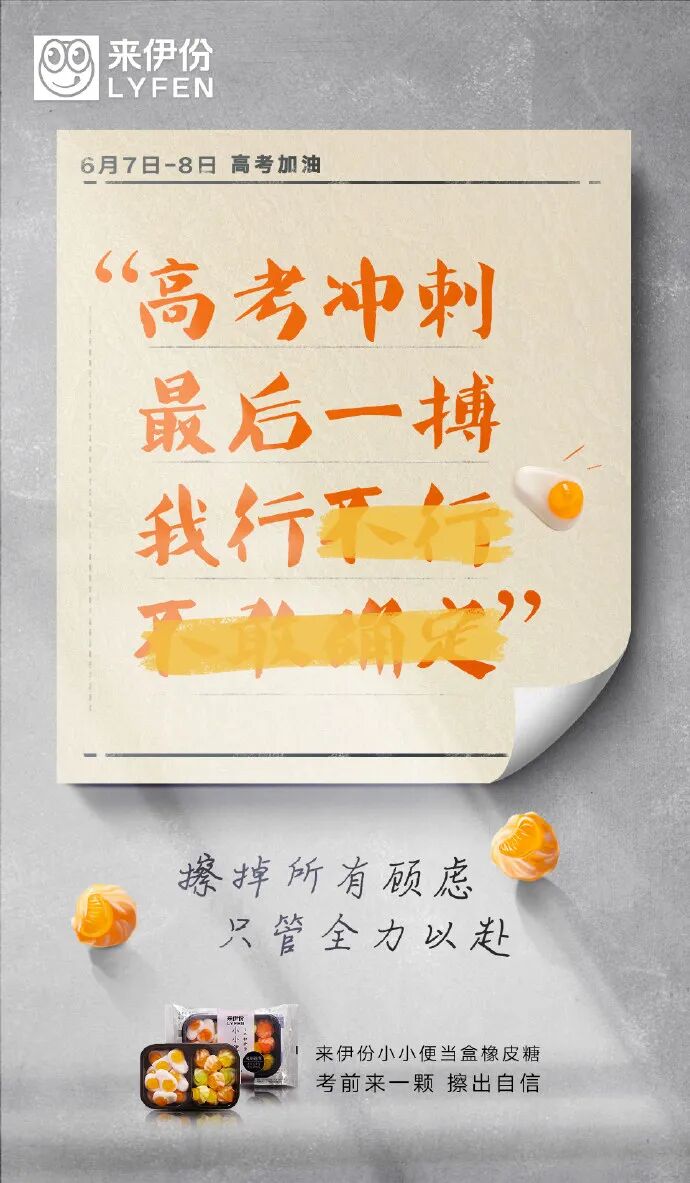 来伊份
LYFEN
6月7日-8日 高考加油
“高考冲刺
最后一搏
我行不行
不敢确定”
擦掉所有顾虑
只管全力以赴
来伊份
LYFEN
来伊份小小便当盒橡皮糖
考前来一颗 擦出自信